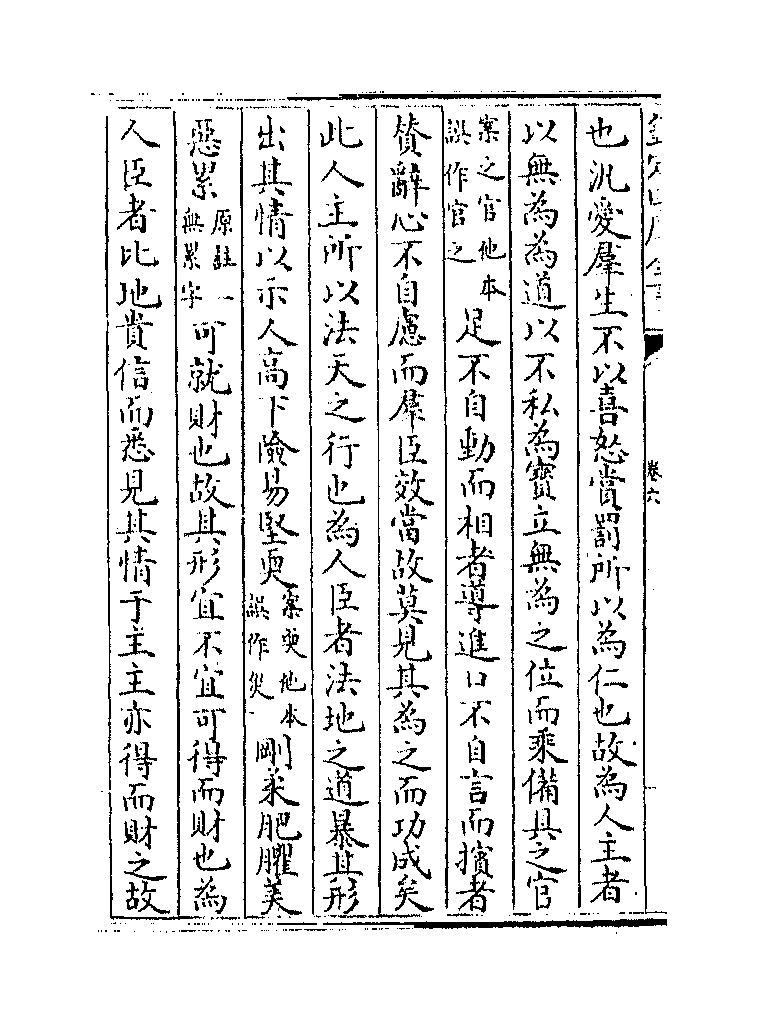 欽定四庫全書
卷六
也汎愛羣生不以喜怒賞罰所以為仁也故為人主者
以無為為道以不私為寶立無為之位而乘備具之官
案之官他本誤作官之足不自動而相者導進口不自言而擯者
贊辭心不自慮而羣臣效當故莫見其為之而功成矣
此人主所以法天之行也為人臣者法地之道暴其形
出其情以示人高下險易堅耎案耎他本誤作㷼剛柔肥臞美
惡累原註一無累字可就財也故其形宜不宜可得而財也為
人臣者比地貴信而悉見其情于主主亦得而財之故